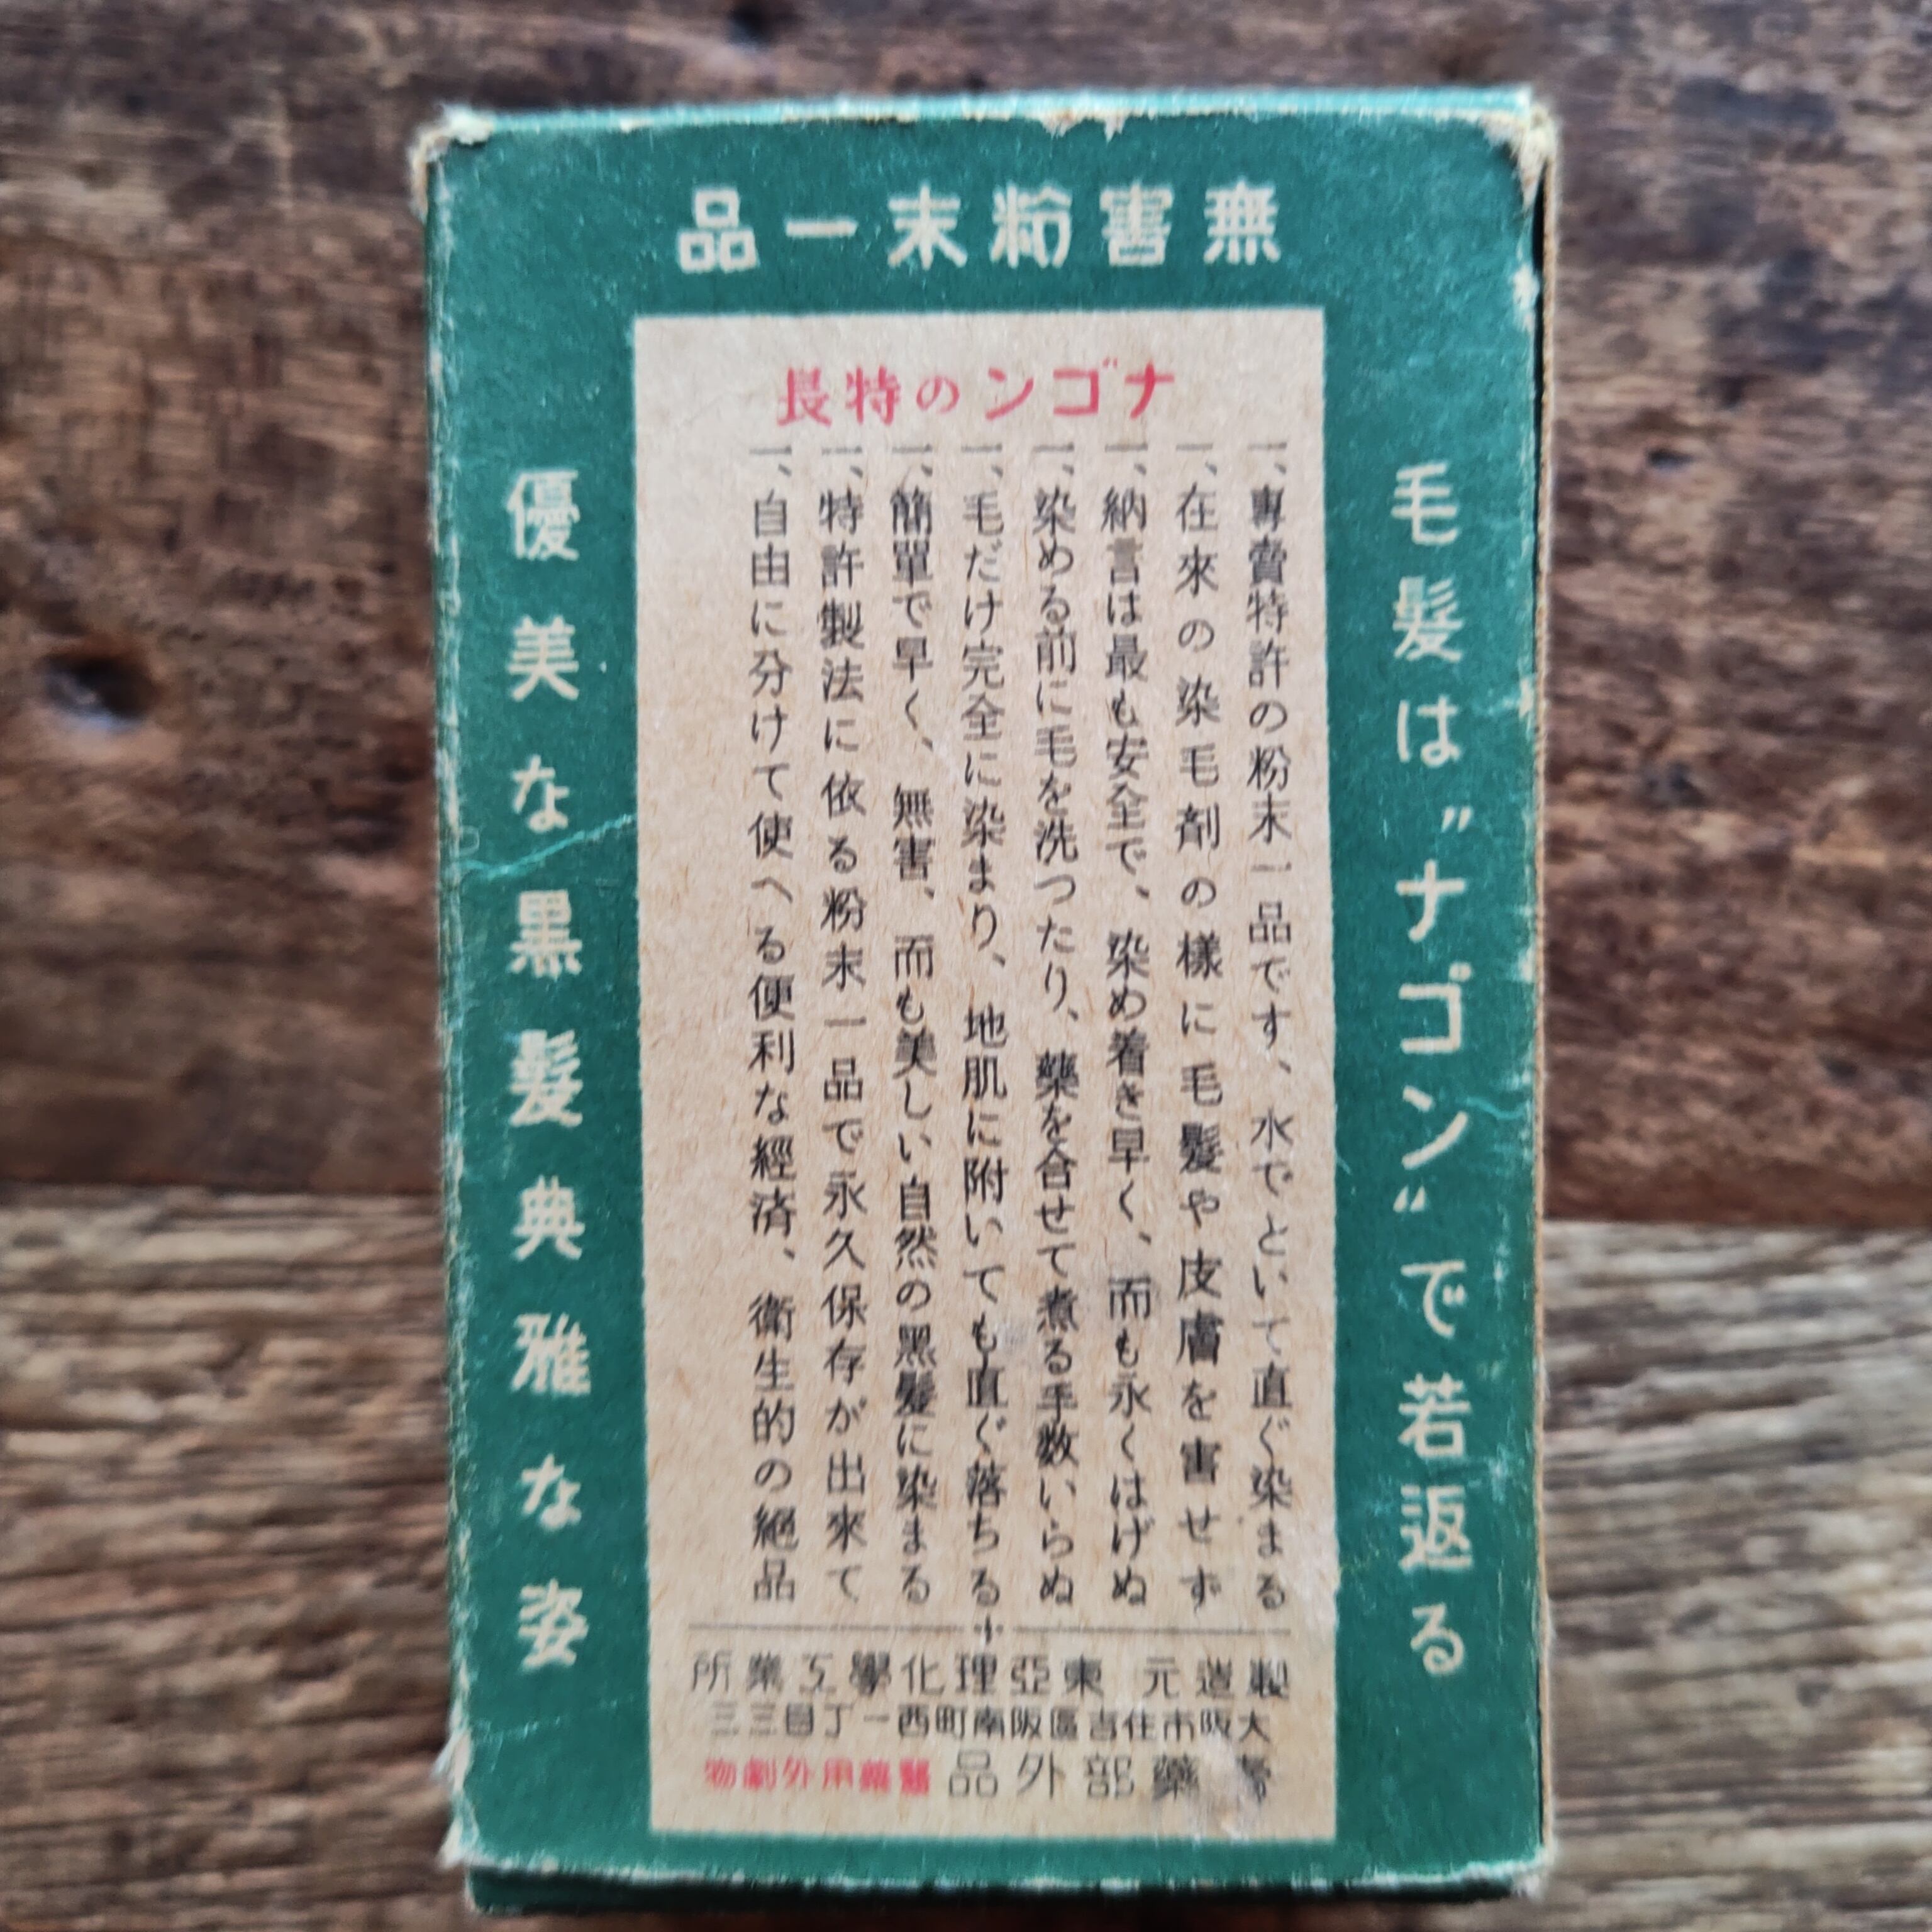 無害粉末一品
毛髪は"ナゴン"で若返る
ナゴンの特長
一、專賣特許の粉末一品です、水でといて直ぐ染まる
一、在來の染毛剤の樣に毛髪や皮膚を害せず
一、納言は最も安全で、染め着き早く、而も永くはげぬ
一、染める前に毛を洗つたり、藥を合せて煮る手数いらぬ
一、毛だけ完全に染まり、地肌に附いても直ぐ落ちる
一、簡單で早く、無害、而も美しい自然の黑髪に染まる
一、特許製法に依る粉末一品で永久保存が出來て
一、自由に分けて使へる便利な經済、衛生的の絕品
製造元 東亞理化學工業所
大阪市住吉區阪南町西一丁目三三
藥部外品 醫藥用外劇物
優美な黒髪典雅な姿